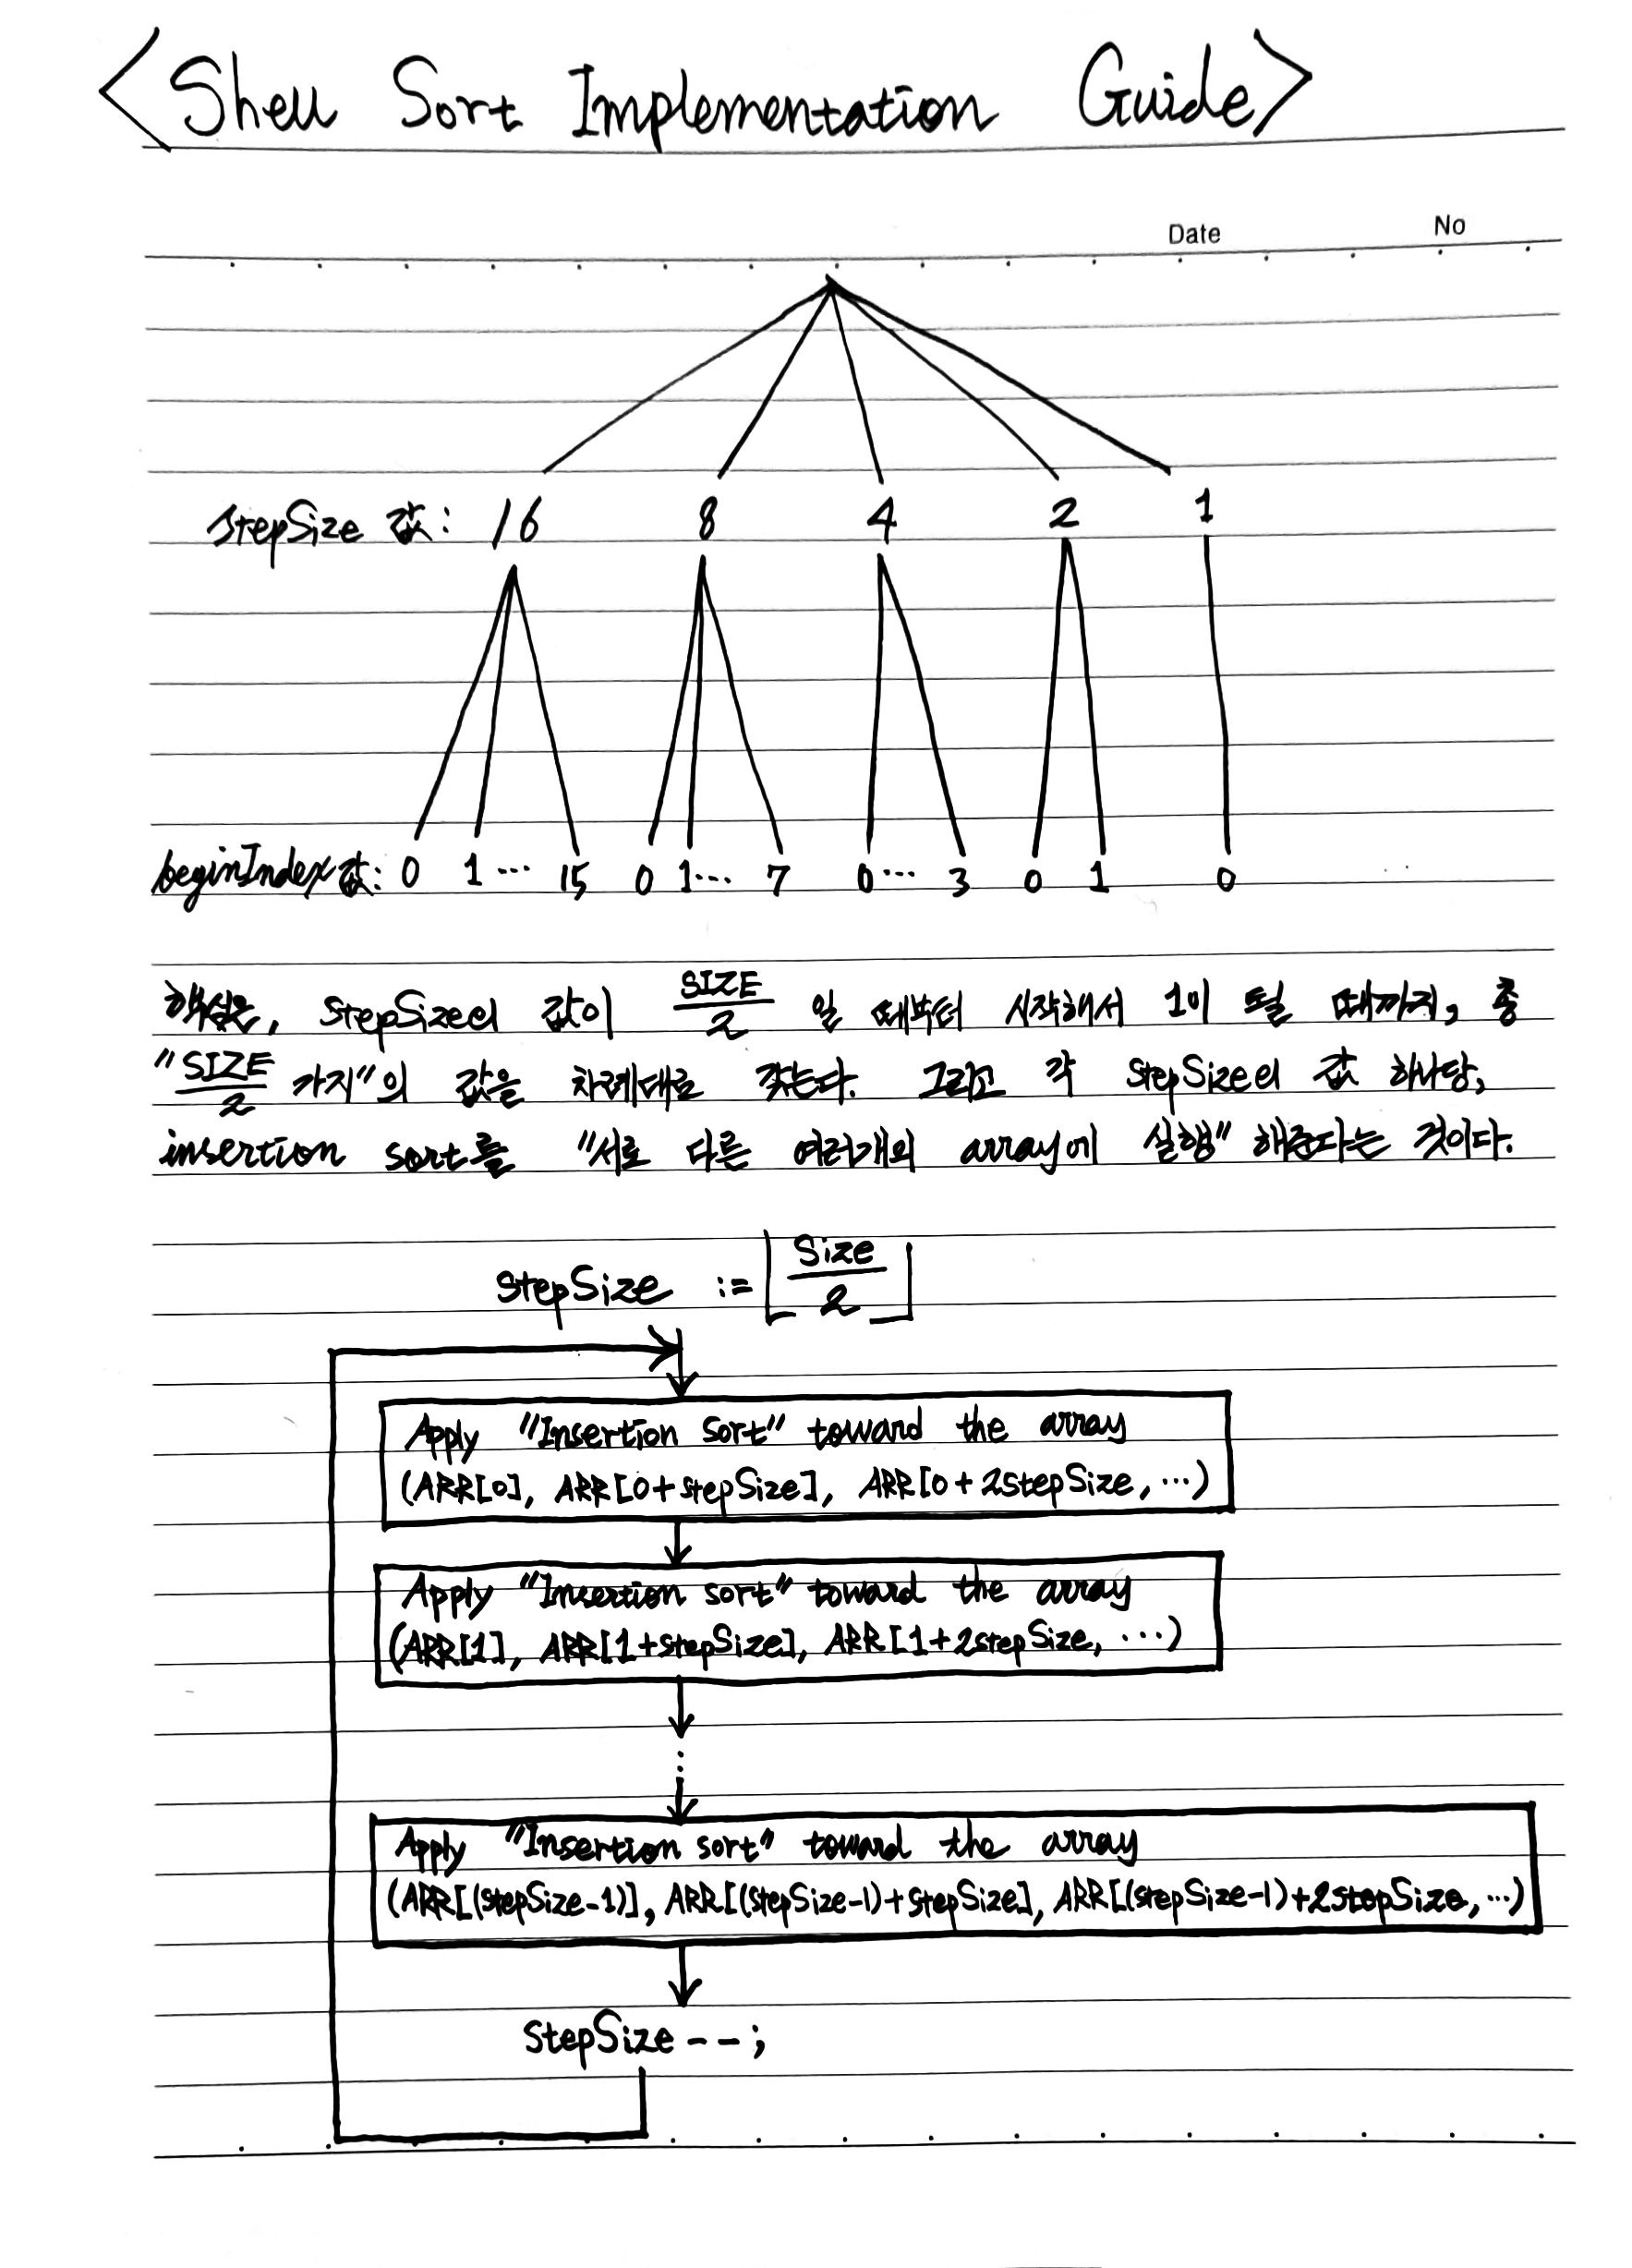 <Shell Sort Implementation Guide>
Date No
stepSize 값: 16 8 4 2 1
beginIndex 값: 0 1 ... 15 0 1... 7 0... 3 0 1 0
핵심은, stepSize의 값이 SIZE/2 일 때부터 시작해서 1이 될 때까지, 총
"SIZE/2 가지"의 값을 차례대로 갖는다. 그리고 각 stepSize의 값 하나당,
insertion sort를 "서로 다른 여러개의 array에 실행" 해준다는 것이다.
stepSize := ⌊Size/2⌋
Apply "Insertion Sort" toward the array
(ARR[0], ARR[0+stepSize], ARR[0+2stepSize, ...)
Apply "Insertion sort" toward the array
(ARR[1], ARR[1+stepSize], ARR[1+2stepSize, ...)
⋮
Apply "Insertion sort" toward the array
(ARR[(stepSize-1)], ARR[(stepSize-1)+stepSize], ARR[(stepSize-1)+2stepSize, ...)
stepSize--;